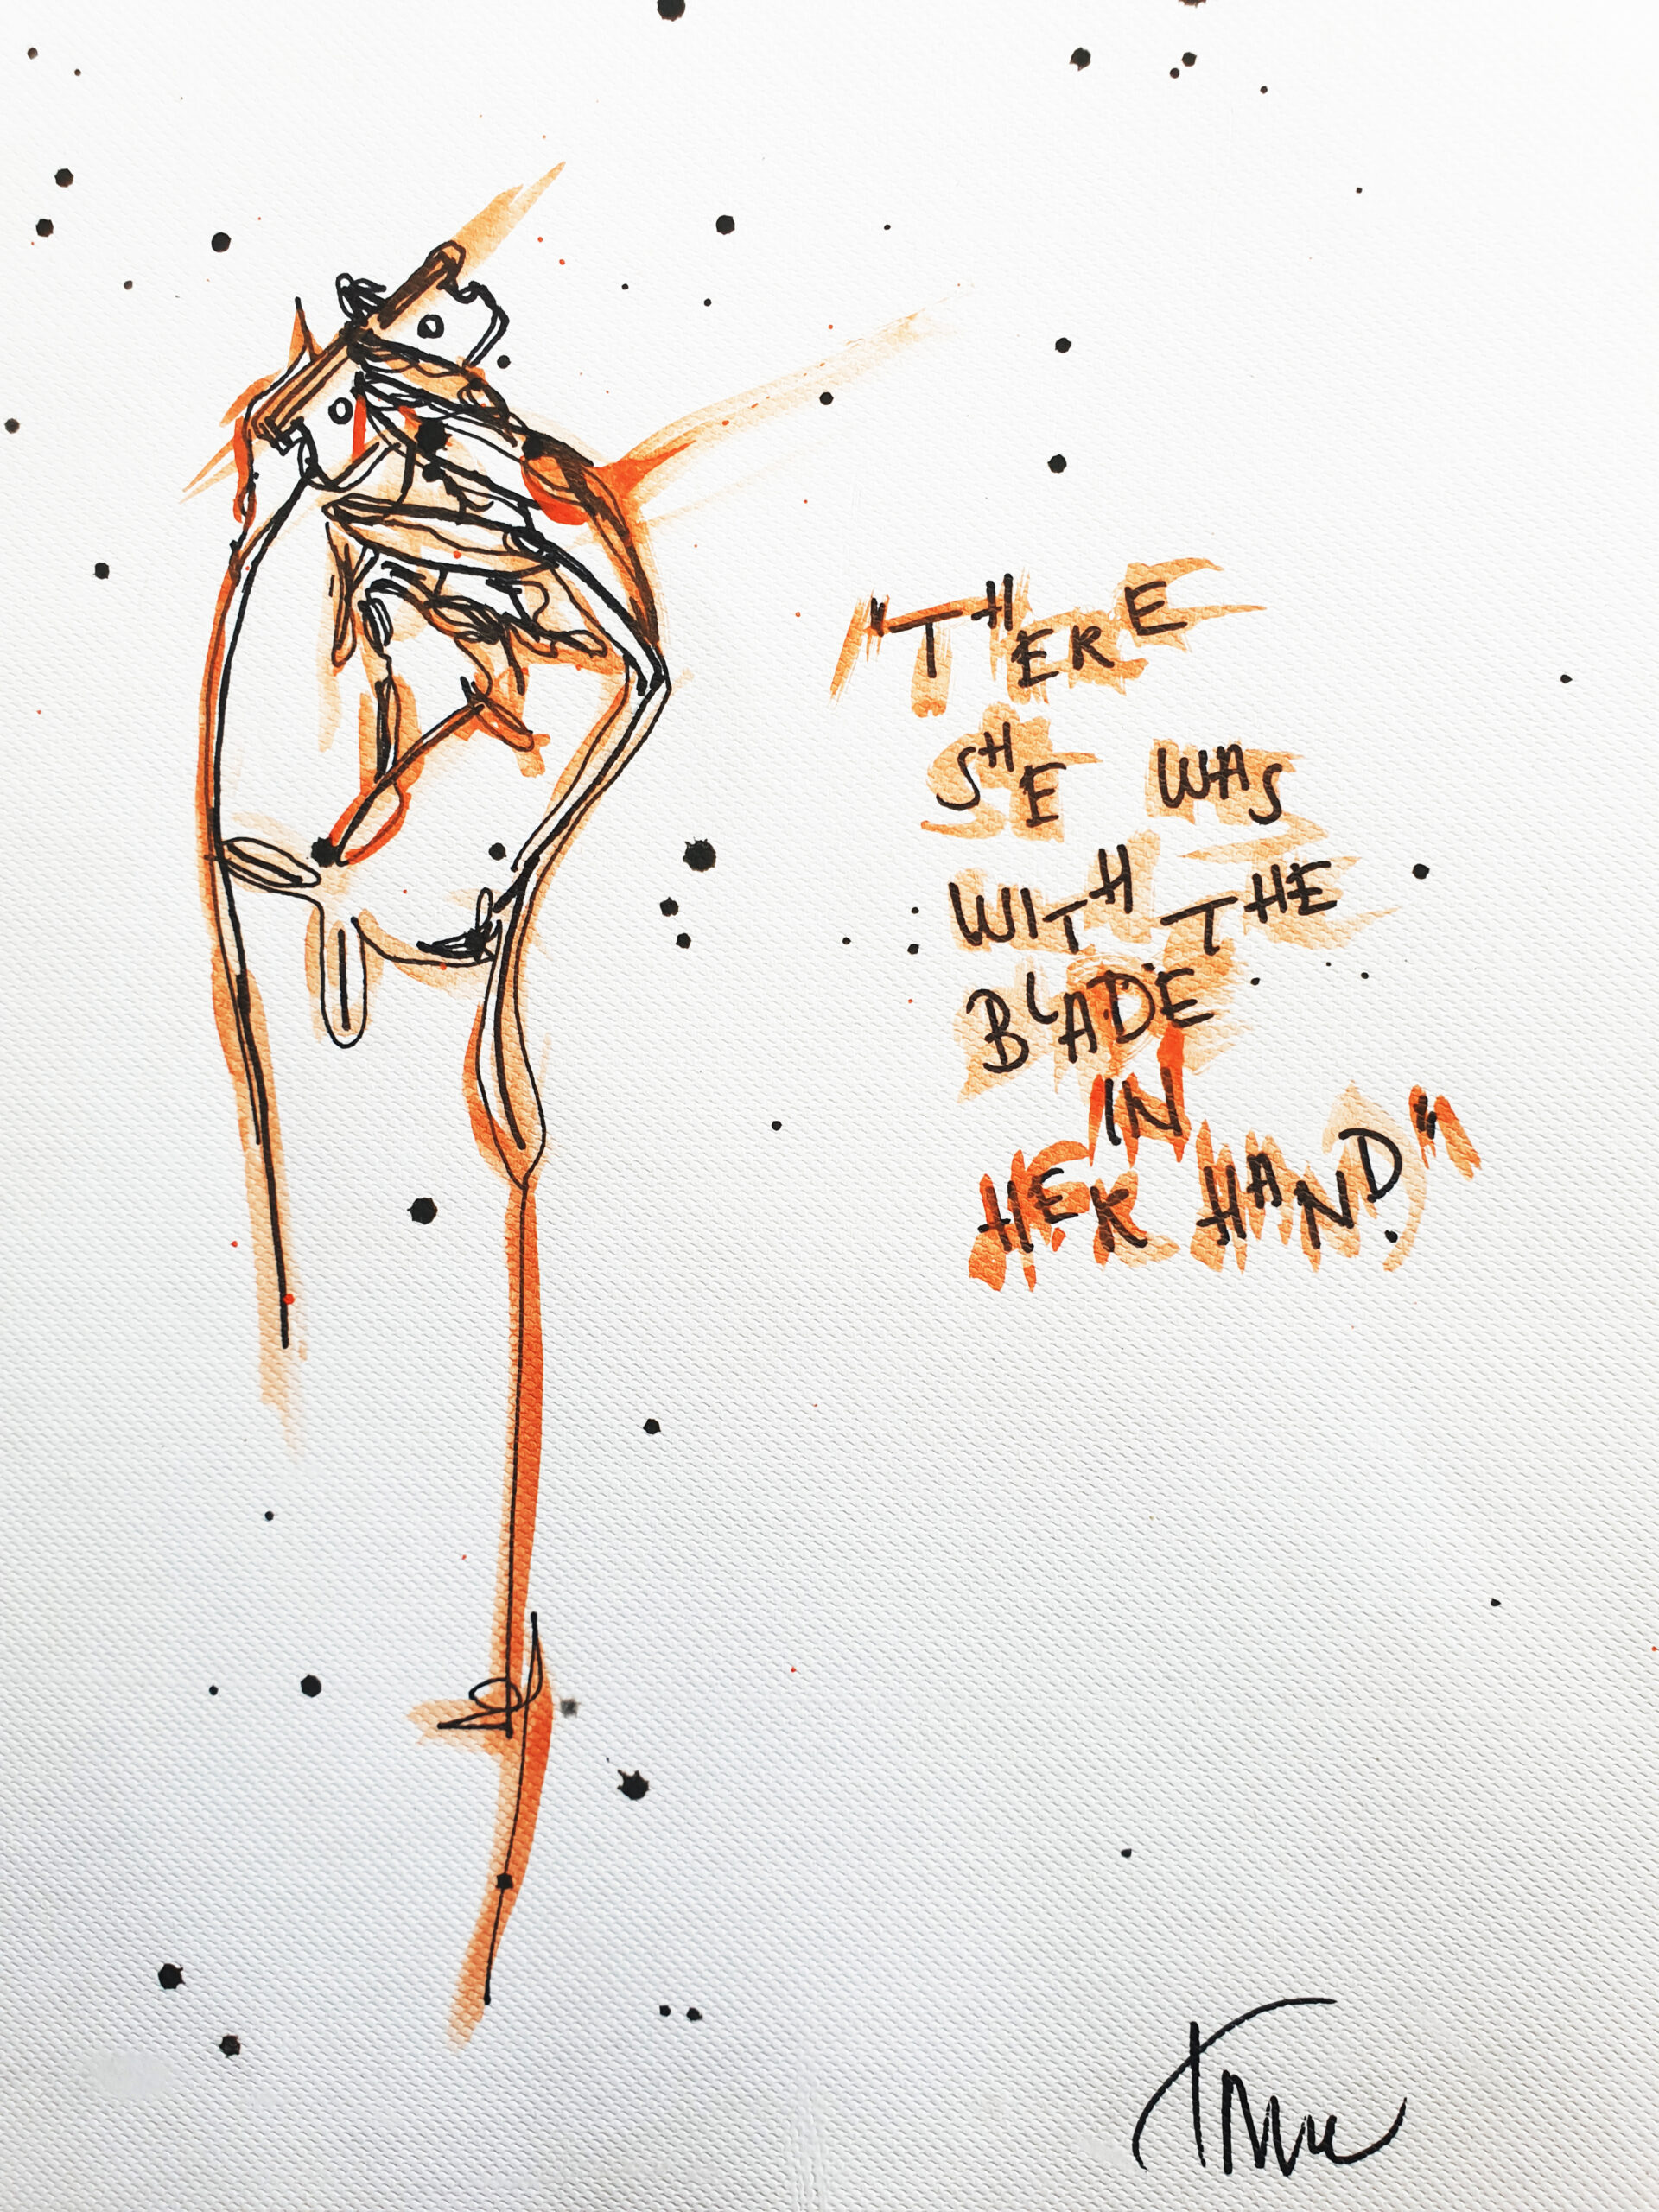 "THERE
SHE WAS
WITH THE
BLADE
IN
HER HAND."